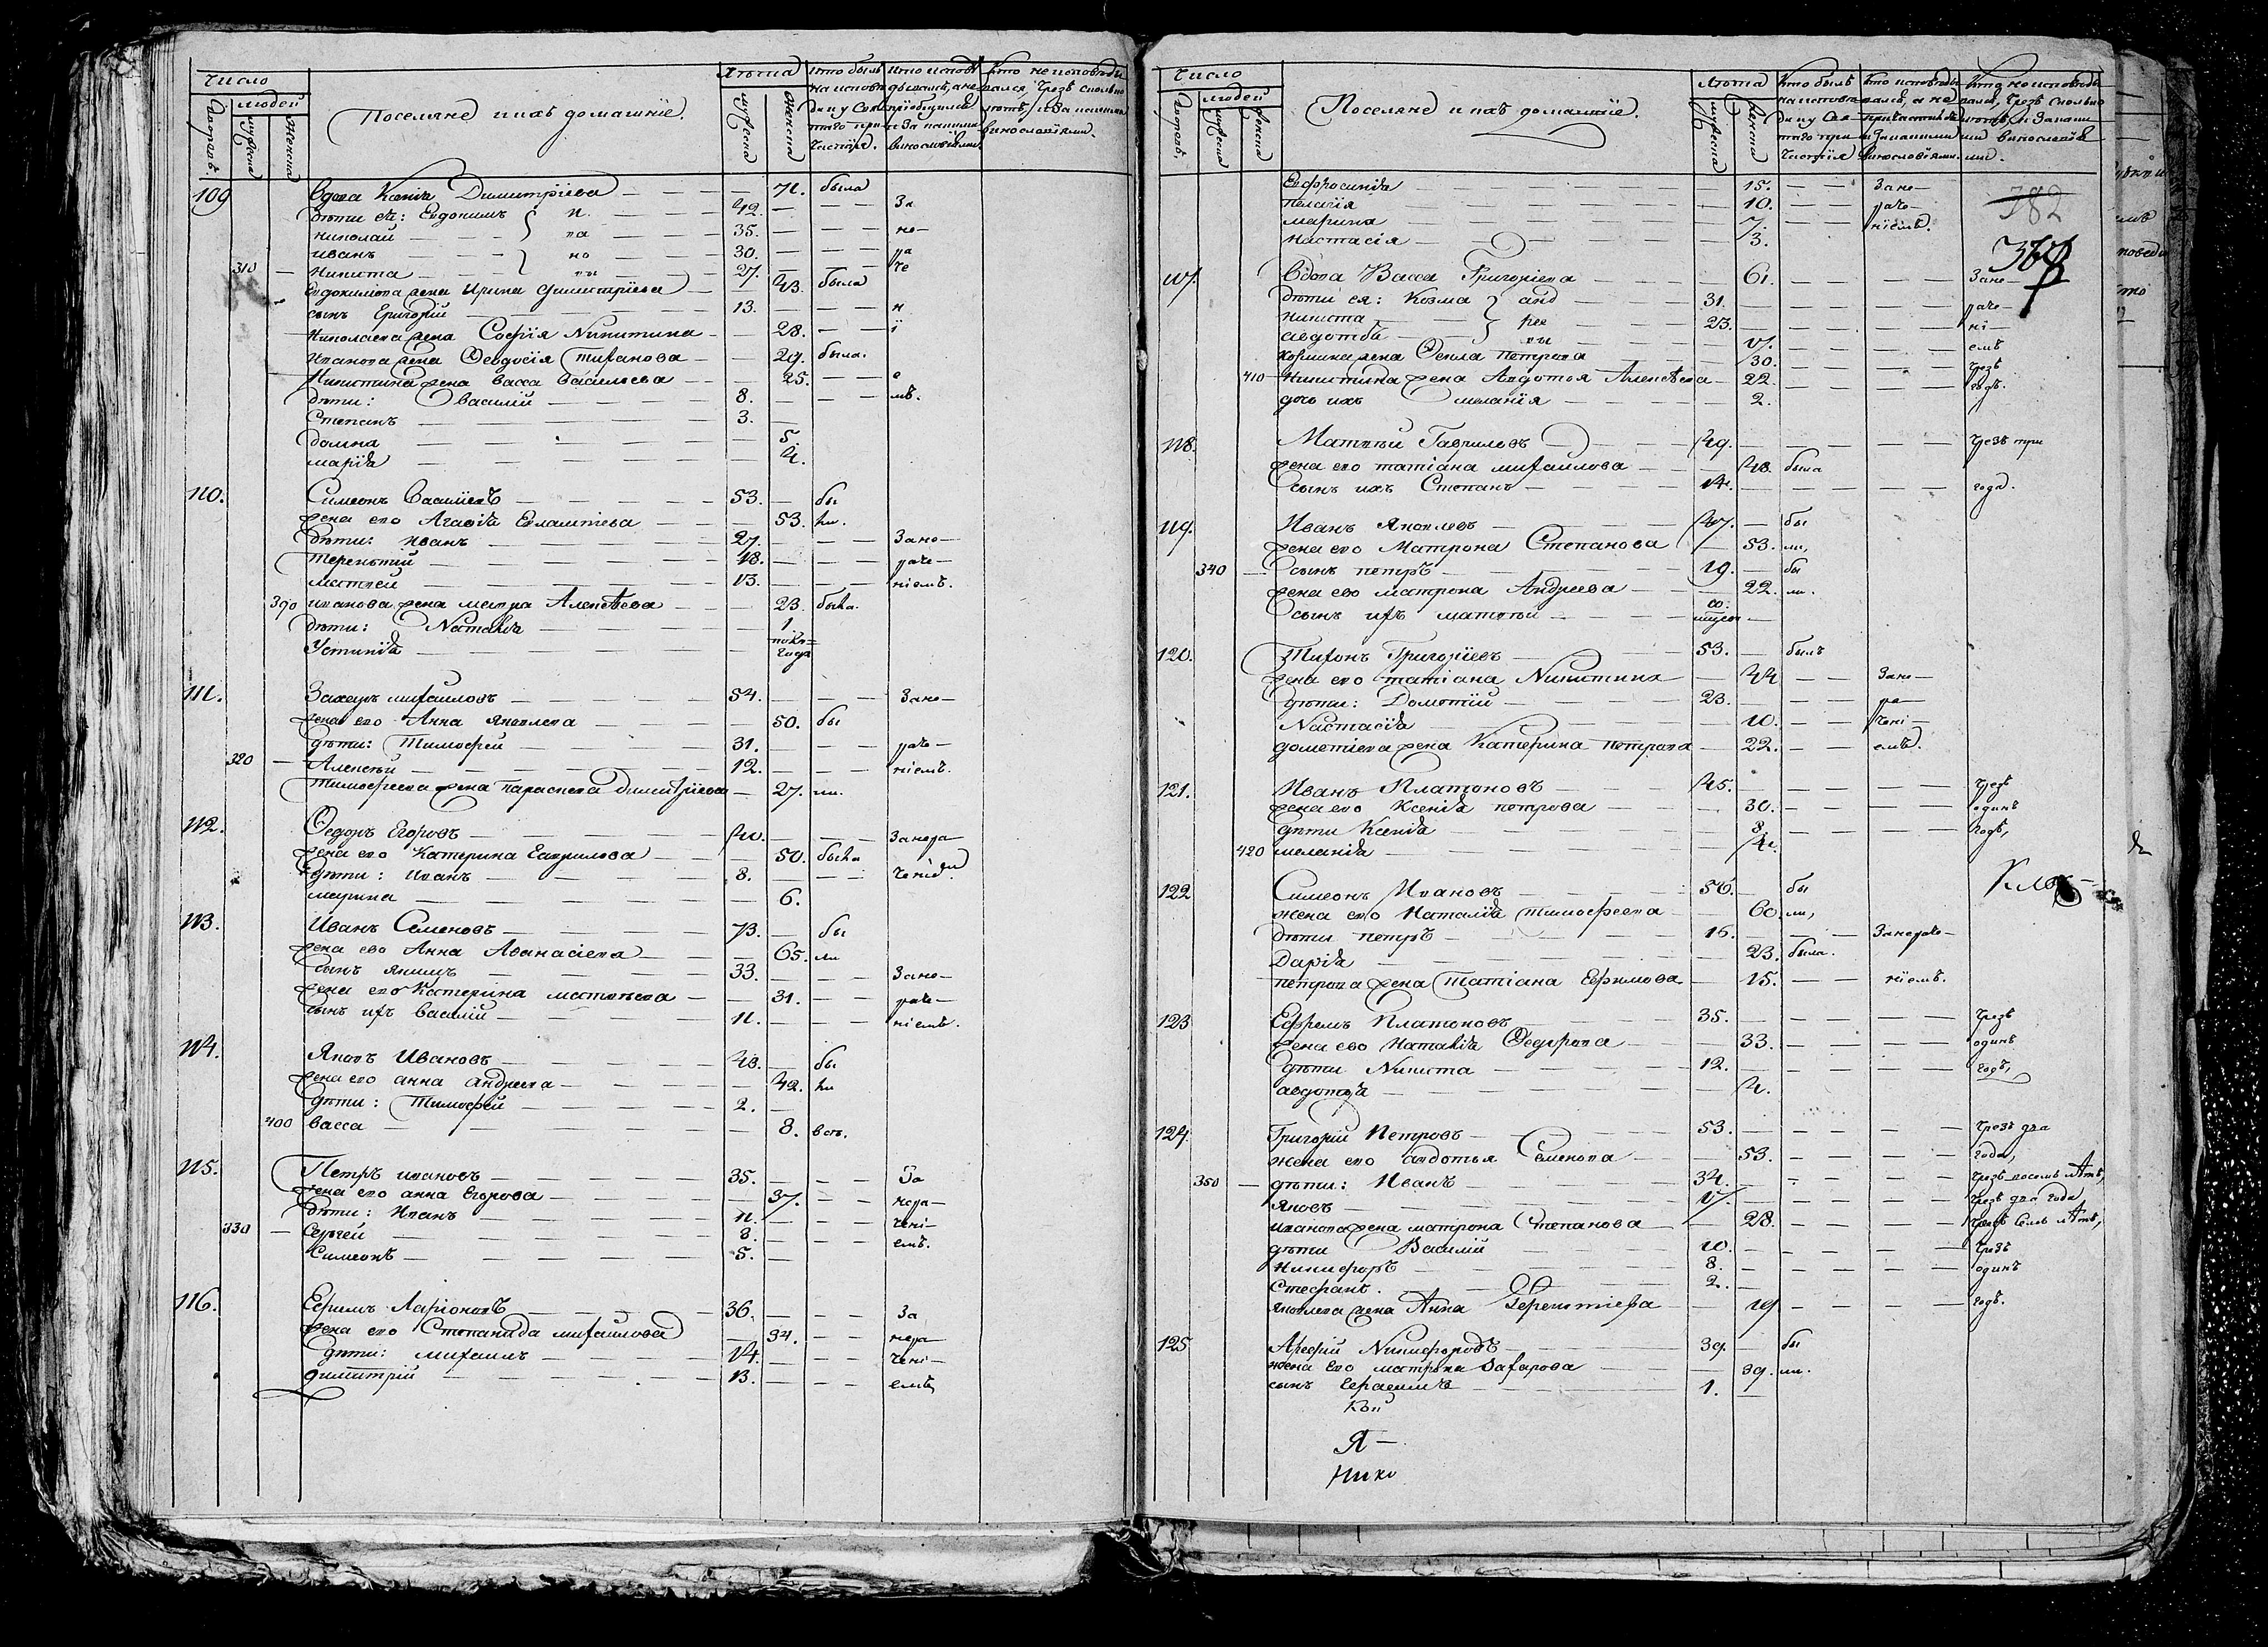 Число
людей
Дворовъ.
мужеска
Женска
Поселяне и ихъ домашніе.
Лѣта
мужеска
Женска
кто былъ на исповѣди и у Святаго причастія.
кто исповѣдывался, а не пріобщился и за какими винословіями.
кто не исповѣдывался, чрезъ сколько лѣтъ, и за какими винословіями.
109 вдова Ксенія Димитріева — 71. была
дѣти ея: Евдокимъ 42. — За
николай — 35. — не
иванъ — 30. — ра
310 — никита — 27. — че
Евдокимова жена Ирина Димитріева — 43. была
сынъ Григорій — 13. — н
николаева жена Софія Никитина — 28. — і
иванова жена Ѳеодосія Тиханова — 29. была.
Никитина жена васса васильева — 25. — е
дѣти: василій — 8. — мъ.
Степанъ — 3. —
домна — 5.
марія — 4.
110. Симеонъ Васильевъ — 53. — бы
жена его Агафія Евлампіева — 53. ли.
дѣти: иванъ — 27. — За не-
терентий — 18. — раче-
матвей — 13. — ніемъ.
390 иванова жена мавра Алексѣева — 23. была.
дѣти: Наталія — 1.
Устинія — полъ года
111. Захаръ михаиловъ — 54. — За не-
жена его Анна Яковлева — 50. бы
дѣти: Тимофей — 31. — раче-
320 — Алексѣй — 12. — ніемъ.
Тимофеева жена Параскева димитріева — 27. ли.
112. Ѳедоръ Егоровъ — 40. — За нера-
жена его Катерина Гаврилова — 50. была
дѣти: иванъ — 8. — ченіем.
марина — 6.
113. Иванъ Семеновъ — 73. — бы
жена его Анна Аѳанасіева — 65. ли
сынъ якимъ — 33. — За не-
жена его Катерина матвѣева — 31. — раче-
сынъ ихъ василій — 11. — ніемъ.
114. Яковъ Ивановъ — 48. — бы
жена его анна андреева — 42. ли
дѣти: Тимофей — 2. —
400 васса — 8. всѣ.
115. Петръ ивановъ — 35. — За
жена его анна Егорова — 37. — нера-
дѣти: Иванъ — 11. — чені-
330 — Сергей — 8. — емъ.
Симеонъ — 5. —
116. Ефимъ Ларіоновъ — 36. — За
жена его Степанида михаилова — 34. — нера-
дѣти: михаилъ — 14. — чені-
димитрій — 13. — емъ,
Число
людей
Дворовъ.
мужеска
женска
Поселяне и ихъ домашніе.
Лѣта
мужеска
женска
Кто былъ на исповѣди и у Святаго причастія
кто исповѣдывался, а не причастился и за какими винословіями.
кто не исповѣдывался, чрезъ сколько лѣтъ, и за какими винословіями.
Евфросинія — 15. — За не-
пелагія — 10. — раче-
марина — 7. — ніемъ.
настасія — 3.
382
117. вдова Васса Григорьева — 61. — За не-
дѣти ея: Козма — 31. — раче-
никита — 23. — ні-
авдотья — 17. — емъ
козмина жена Ѳекла петрова — 30. — чрезъ
410 — никитина жена Авдотья Алексѣева — 22 — годъ.
дочь ихъ меланія — 2.
118. Матвѣй Гавриловъ — 49. — чрезъ три
жена его татіана михаилова — 48. была
сынъ ихъ Степанъ — 14. — года.
119. Иванъ Яковлевъ — 47. — бы
жена его Матрона Степанова — 53. ли,
340 — сынъ петръ — 19. — бы
жена его матрона Андреева — 22. ли.
сынъ ихъ матвѣй —
120. Тихонъ Григорьевъ — 53. — былъ
жена его татіана Никитина — 44 — За не-
дѣти: Дометій — 23. — ра-
Настасія — 10. — чені-
дометіева жена Катерина петрова — 22. — емъ.
121. Иванъ Платоновъ — 45. — чрезъ
жена его Ксенія петрова — 30. — одинъ
дѣти Ксенія — 8. — годъ,
420 меланія — 4.
122 Симеонъ Ивановъ — 56. — бы
жена его Наталія тимофеева — 60. ли,
дѣти петръ — 16. — За нераче-
Дарія — 23. была.
петрова жена татіана Ефимова — 15. — ніемъ.
123 Ефремъ Платоновъ — 35. — чрезъ
жена его Наталія Ѳедорова — 33. — одинъ
дѣти Никита — 12. — годъ,
авдотья — 4.
124. Григорій Петровъ — 53. — чрезъ два
жена его авдотья Семенова — 53. — года,
350 — дѣти: Иванъ — 34. — чрезъ восемь лѣтъ,
Яковъ — 17. — чрезъ два года,
иванова жена матрона Степанова — 28. — чрезъ семь лѣтъ,
дѣти Василій — 10. — чрезъ
никифоръ — 8. — одинъ
Стефанъ. — 2. —
яковлева жена Анна Терентіева — 19 — годъ.
125 Арефій Никифоровъ — 39. — бы
жена его матрона Захарова — 39. ли.
сынъ Герасимъ — 1. —
Кои
Я —
Нико